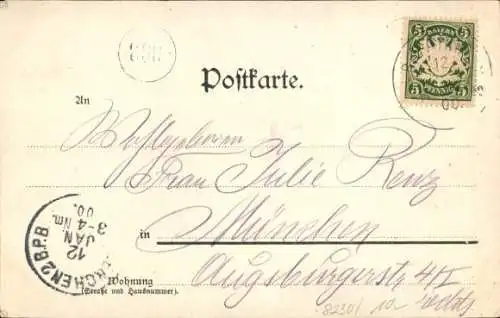 5 BAYERN 5
5 PFENNIG 5
12
00
Postkarte.
An
Wohlgeboren
Frau Julie Renz
in München
Augsburgerst 4/I
rechts
Wohnung
(Straße und Hausnummer).
MÜNCHEN 2 B.P.B.
12
JAN
3-4 Nm.
00.
8230/ 10.-